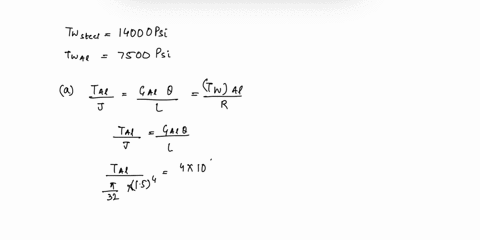 TW steel = 14000 Psi
TW Al = 7500 Psi
(a) TAl / J = GAl θ / L = (TW) Al / R
TAl / J = GAl θ / L
TAl / (π/32 × (1.5)^4) = 4 × 10